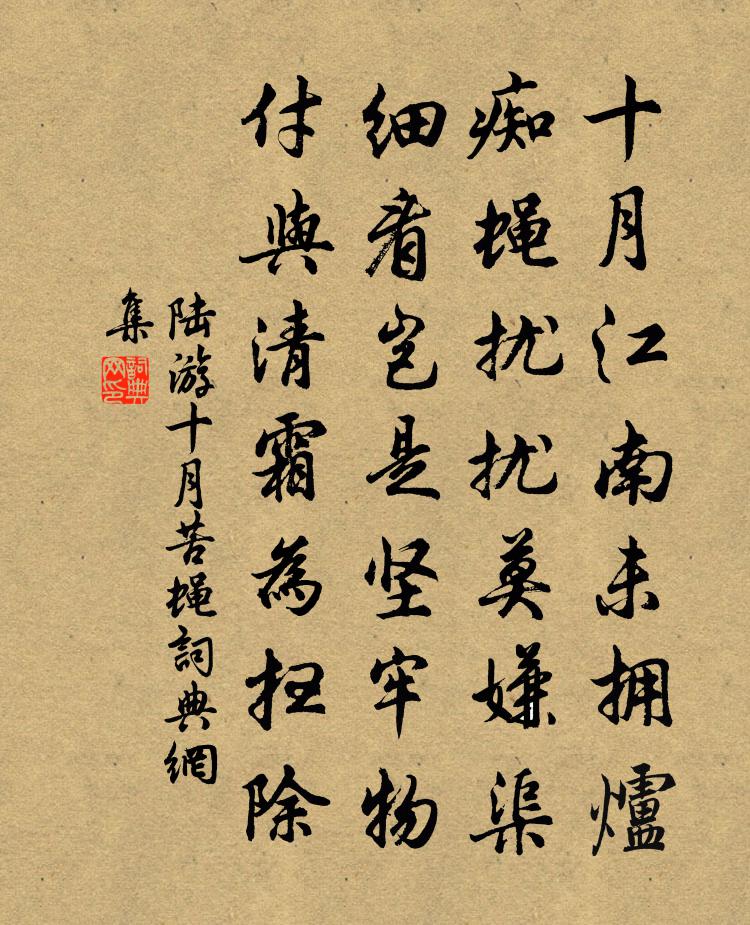 十月江南未拥爐
痴蝇扰扰莫嫌渠
细看岂是坚牢物
付與清霜為扫除
陆游十月苦蝇詞典網
集
詞典
网印